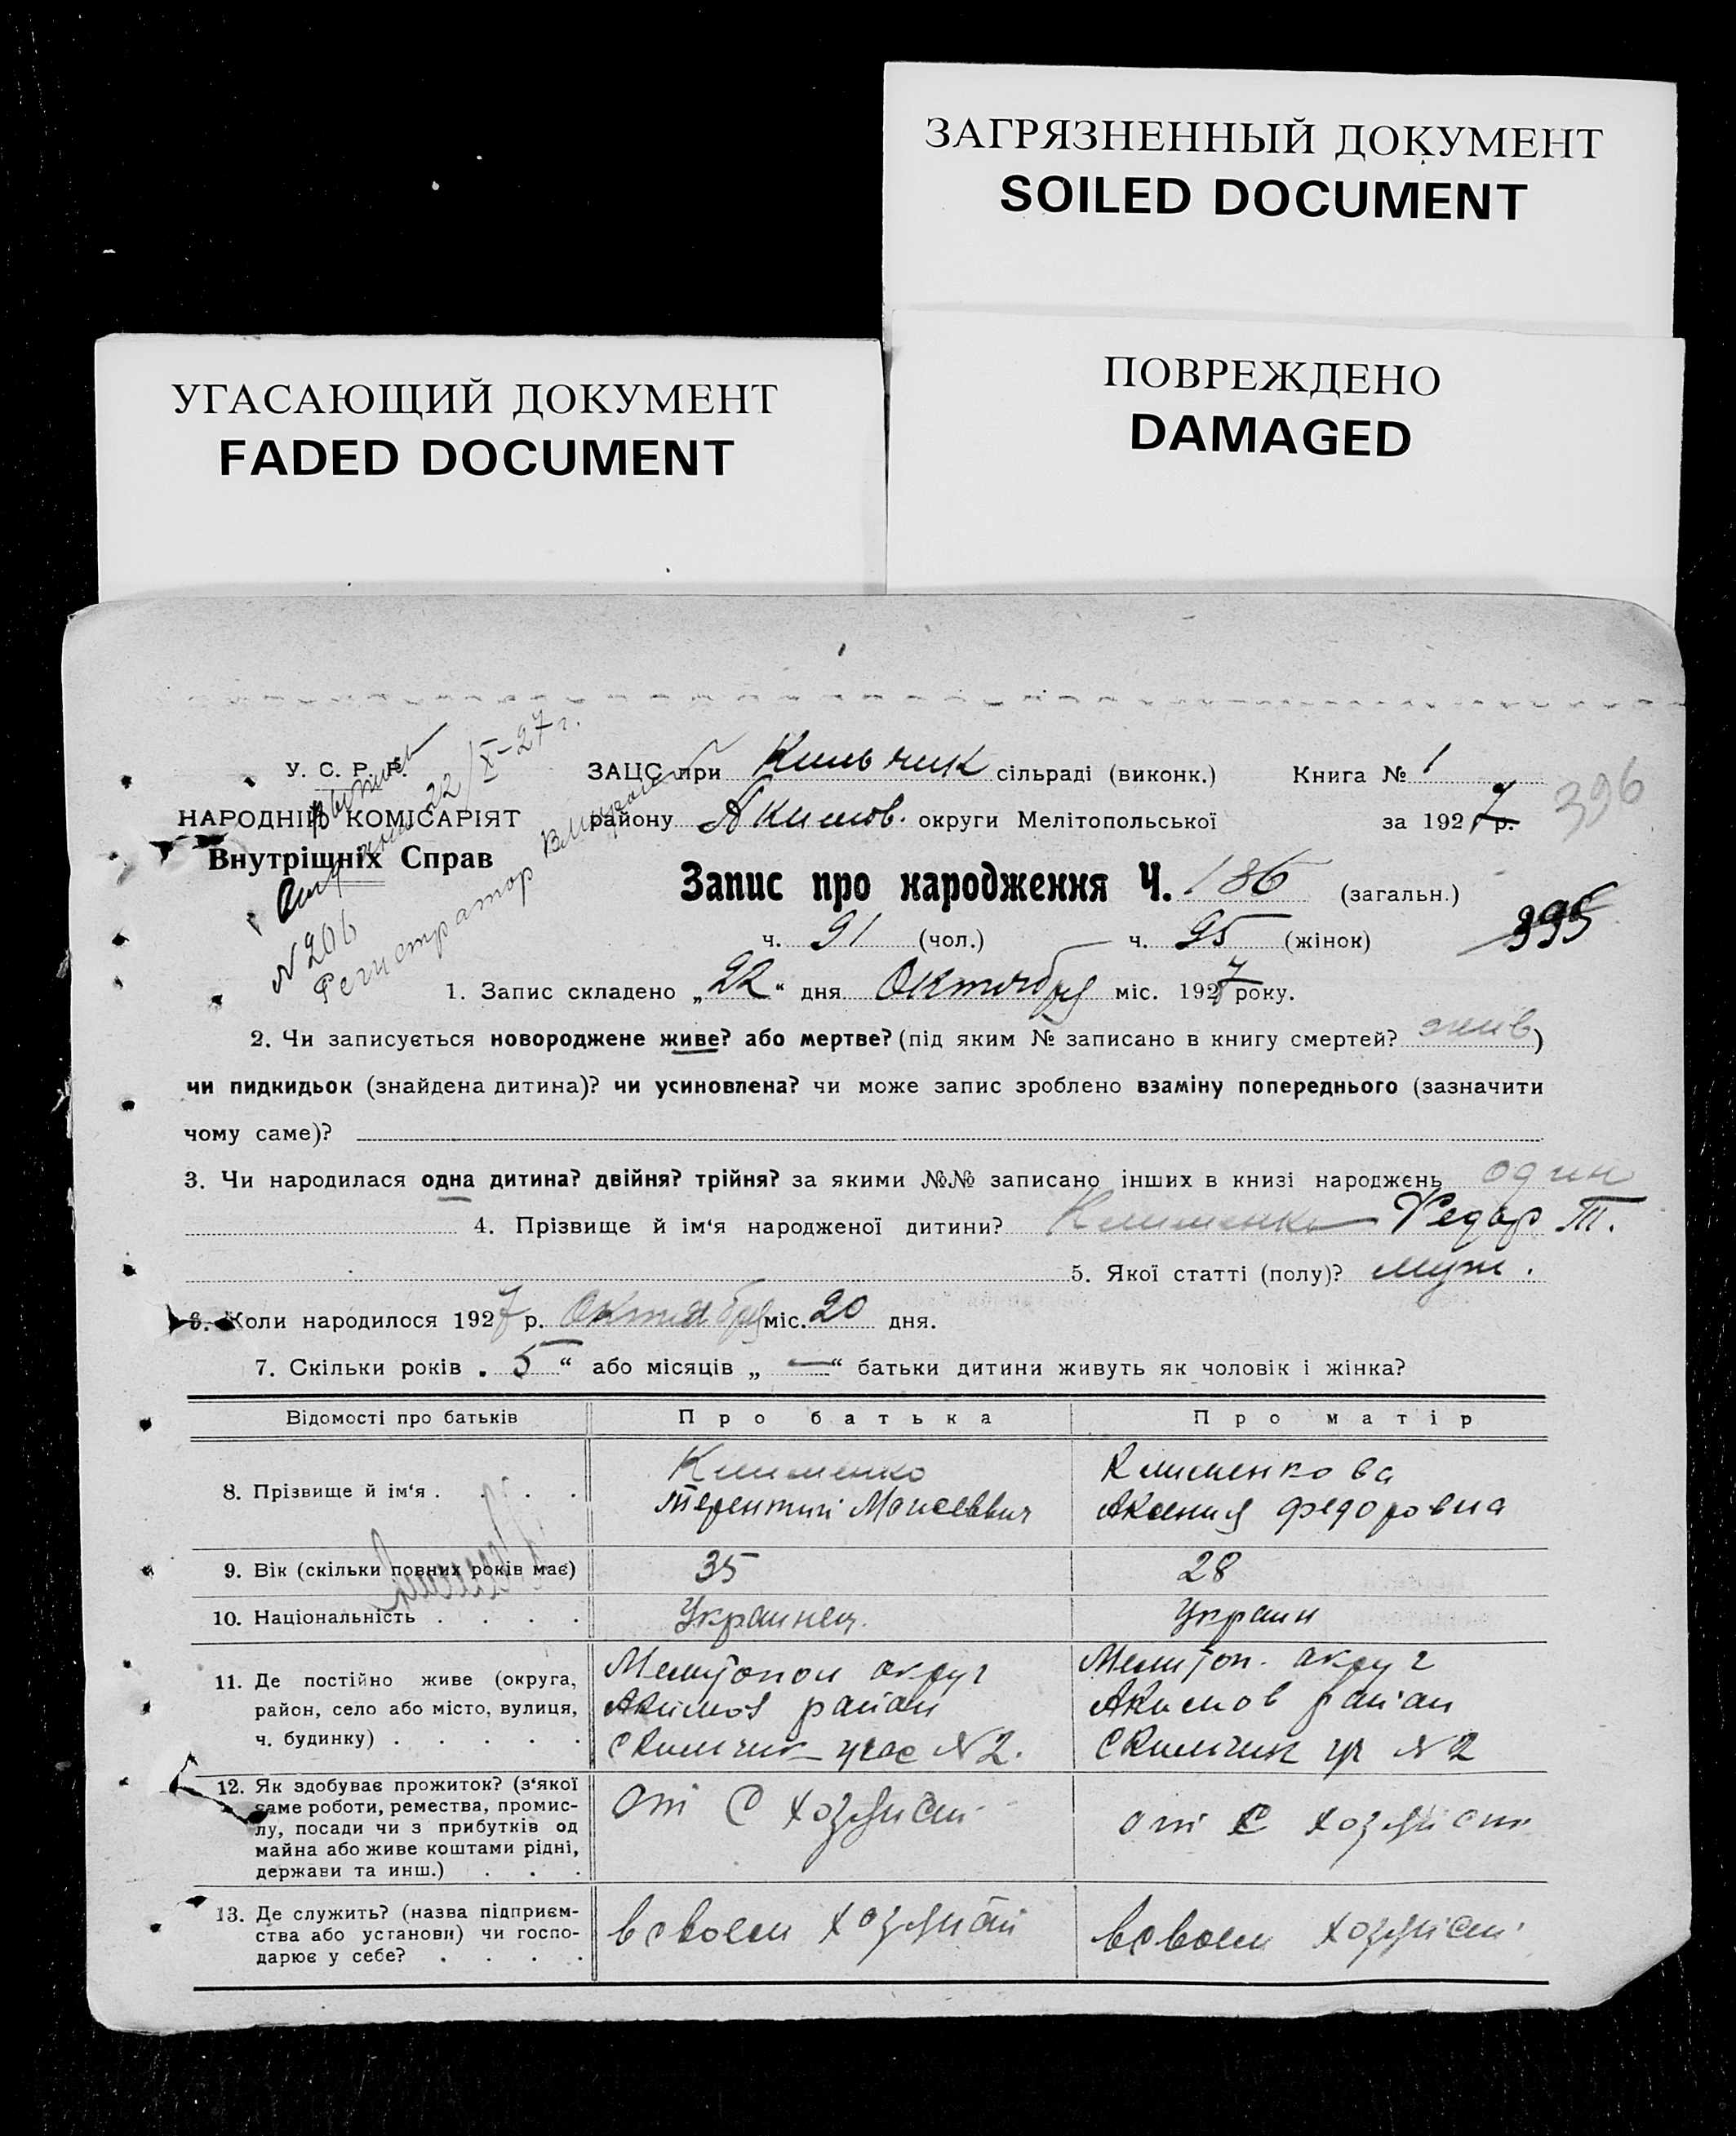 ЗАГРЯЗНЕННЫЙ ДОКУМЕНТ
SOILED DOCUMENT
УГАСАЮЩИЙ ДОКУМЕНТ
FADED DOCUMENT
ПОВРЕЖДЕНО
DAMAGED
У. С. Р. Р.
НАРОДНІЙ КОМІСАРІЯТ
Внутрішніх Справ
22/X-27 г.
N 206
Регистратор
ЗАЦС при Кильчик сільраді (виконк.) Книга № 1
району Акимов. округи Мелітопольської за 1927 р.
396
Запис про народження Ч. 186 (загальн.)
395
ч. 91 (чол.) ч. 95 (жінок)
1. Запис складено „22“ дня Октября міс. 1927 року.
2. Чи записується новороджене живе? або мертве? (під яким № записано в книгу смертей? жив)
чи пидкидьок (знайдена дитина)? чи усиновлена? чи може запис зроблено взаміну попереднього (зазначити
чому саме)?
3. Чи народилася одна дитина? двійня? трійня? за якими №№ записано інших в книзі народжень один
4. Прізвище й ім‘я народженої дитини? Клименко Федор Т.
5. Якої статті (полу)? муж.
6. Коли народилося 1927 р. Октября міс. 20 дня.
7. Скільки років „5“ або місяців „—“ батьки дитини живуть як чоловік і жінка?
Відомості про батьків Про батька Про матір
8. Прізвище й ім‘я . . . .
Клименко
Терентий Моисеевич
Клименкова
Аксения Федоровна
9. Вік (скільки повних років має) 35 28
10. Національність . . . . Украинец. Украин
11. Де постійно живе (округа,
район, село або місто, вулиця,
ч. будинку) . . . . .
Мелитопол округ
Акимов район
С Кильчик учас N 2.
Мелитоп. округ
Акимов район
С Кильчик уч N 2
12. Як здобуває прожиток? (з‘якої
саме роботи, ремества, промис-
лу, посади чи з прибутків од
майна або живе коштами рідні,
держави та инш.) . . .
От С хозяйст
от С хозяйст
13. Де служить? (назва підприєм-
ства або установи) чи госпо-
дарює у себе? . . . .
в своем хозяйст
в своем хозяйст